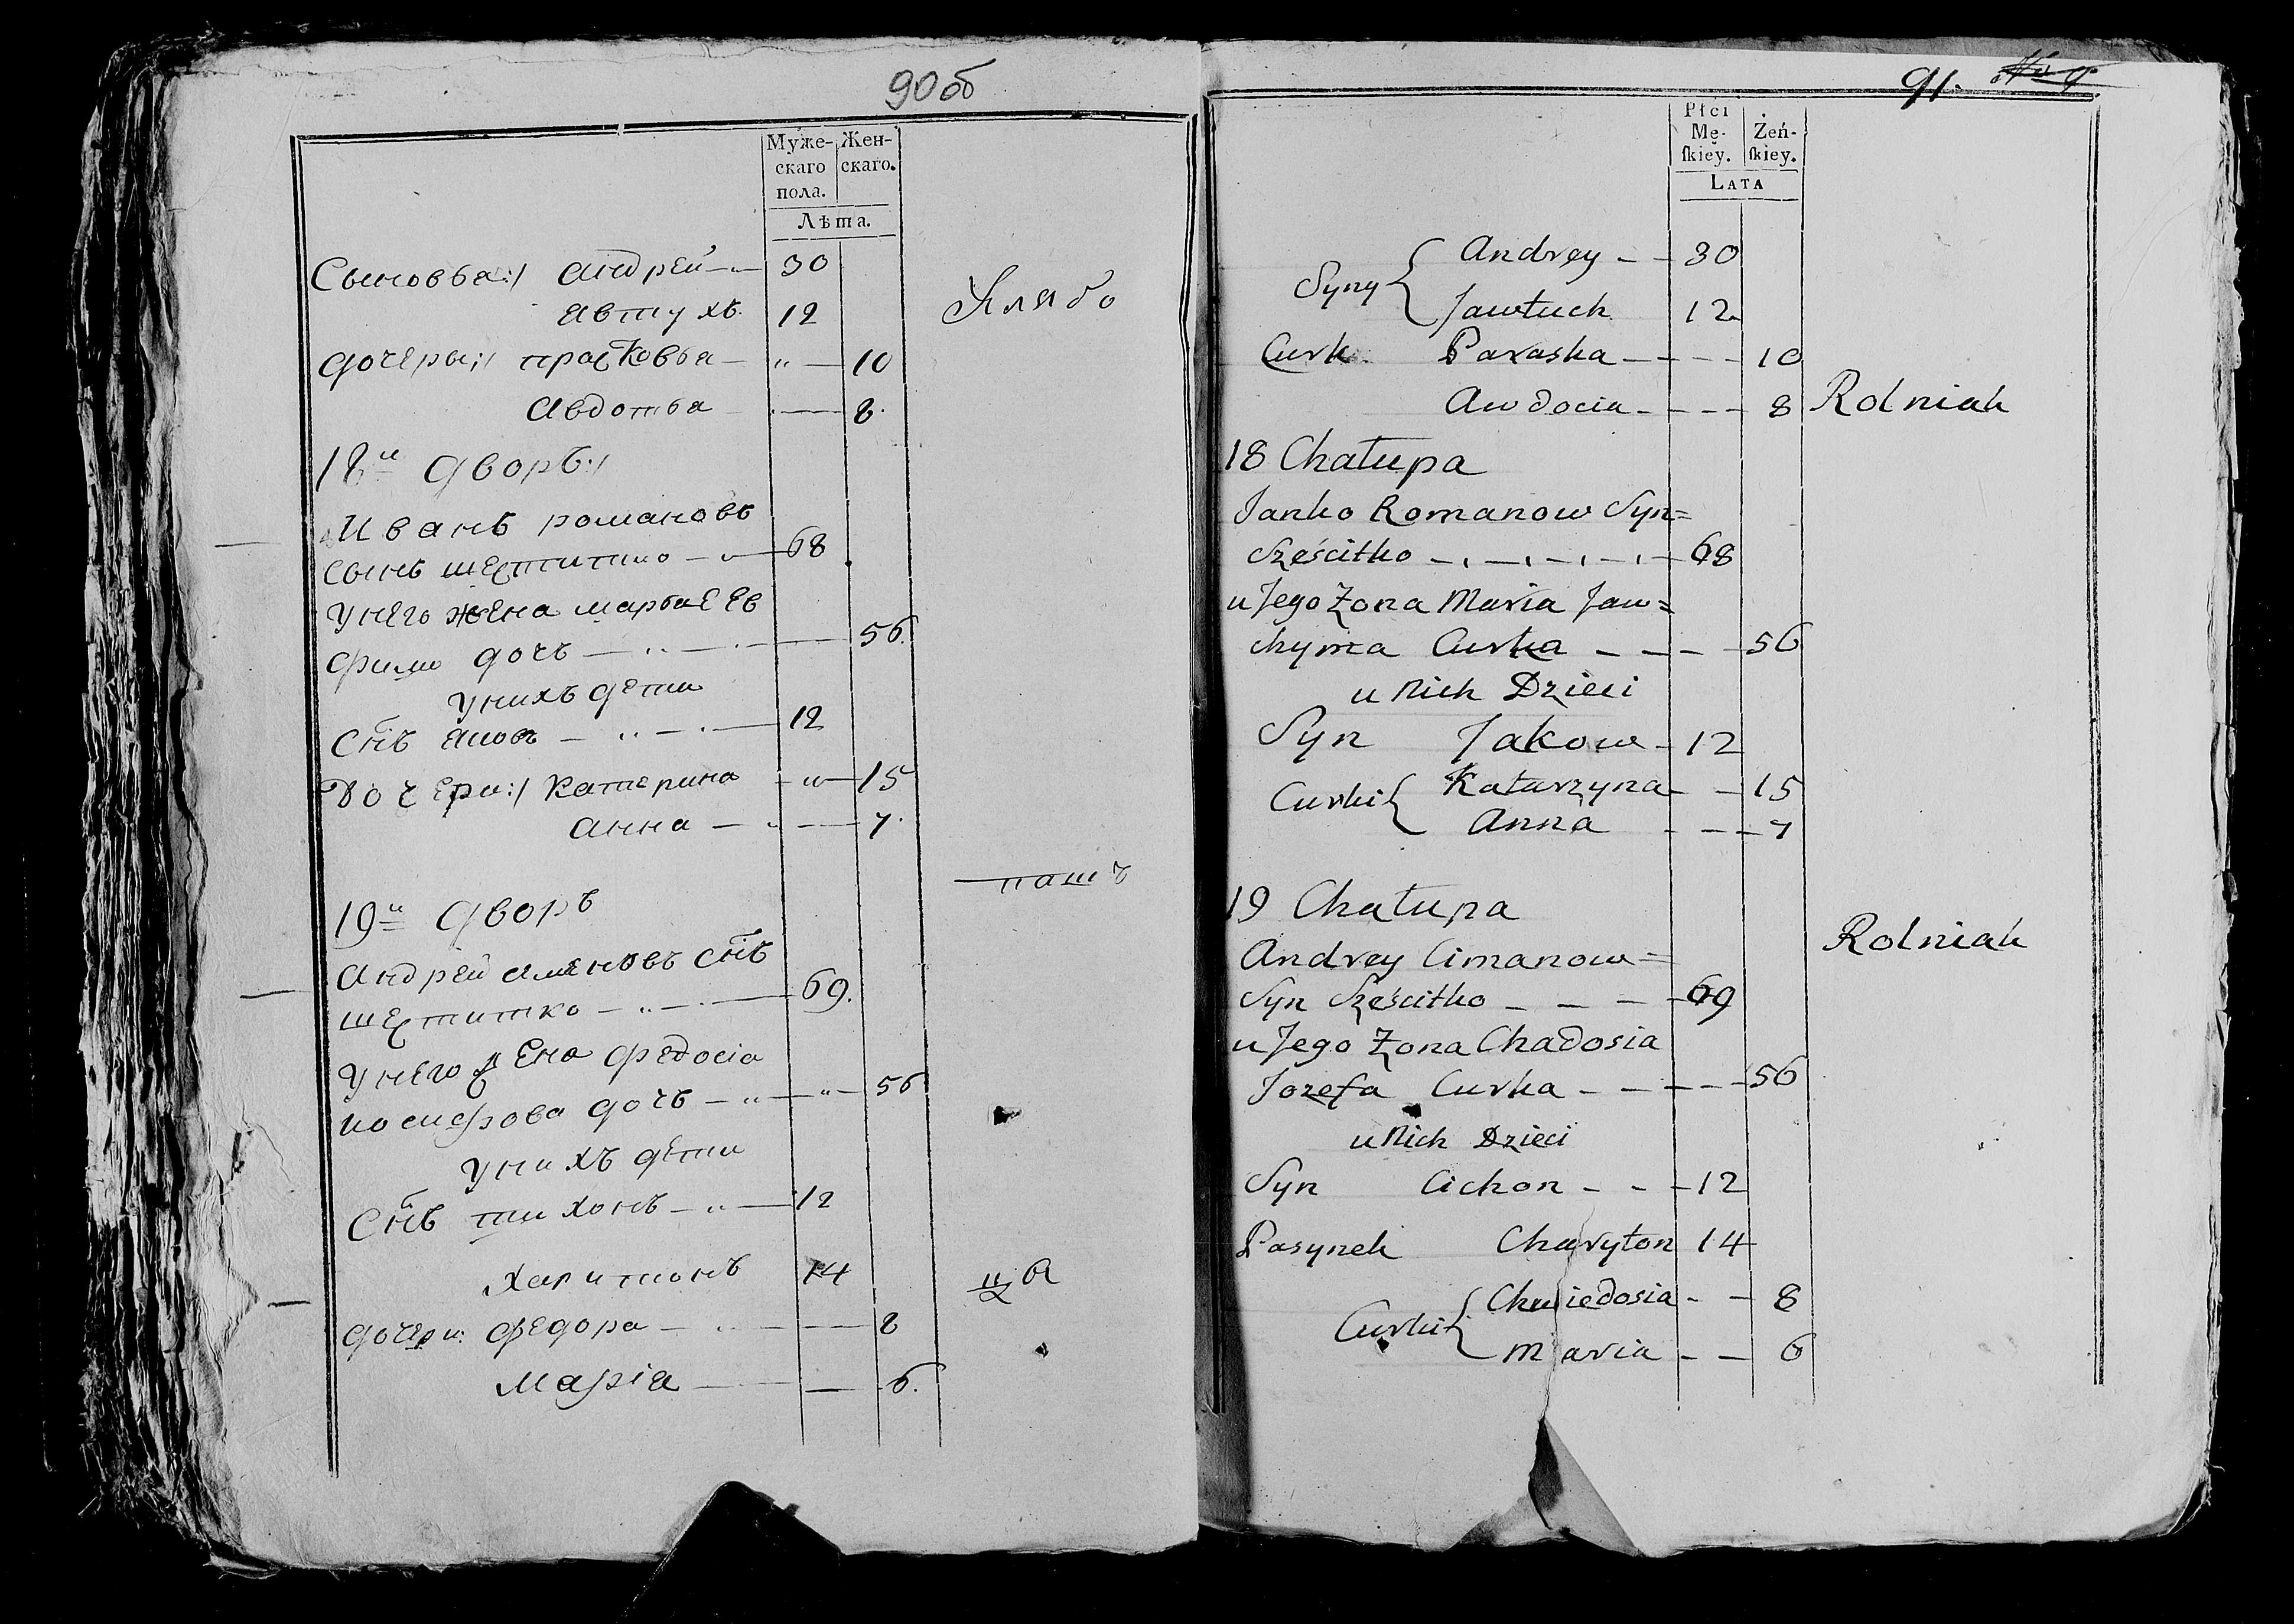 90об
Муже- Жен-
скаго скаго.
пола.
Лѣта.
Сыновья:/ андрей 30
явтухъ 12
дочеры:/ прасковья " 10
Авдотья 8.
18й дворъ:/
Иванъ романовъ
сынъ шеститко 68
унего жена марья Ев
фима дочь 56.
унихъ дети
снъ яковъ 12
Дочери:/ катерина 15
анна 7.
19й дворъ
пашъ
Андрей аменовъ снъ
шеститко 69.
унего жена федосiа
иосифова дочь 56
унихъ дети
снъ тихонъ 12
харитонъ 14
дочери: федора 8
марiя 6.
91.
Płci
Mę- Żeń-
ſkiey. ſkiey.
LATA
Syny { Andrey 30
Jawtuch 12
Curk Paraska 10
Awdocia 8 Rolniak
18 Chałupa
Janko Romanow Syn=
Sześcitko 68
u Jego Żona Maria Jaw=
chyma Curka 56
u Nich Dzieci
Syn Jakow 12
Curki { Katarzyna 15
Anna 7
19 Chałupa
Rolniak
Andrey Cimanow=
Syn Sześcitko 69
u Jego Żona Chadosia
Jozefa Curka 56
u Nich Dzieci
Syn Cichon 12
Pasynek Charyton 14
Curki { Chwiedosia 8
Maria 6